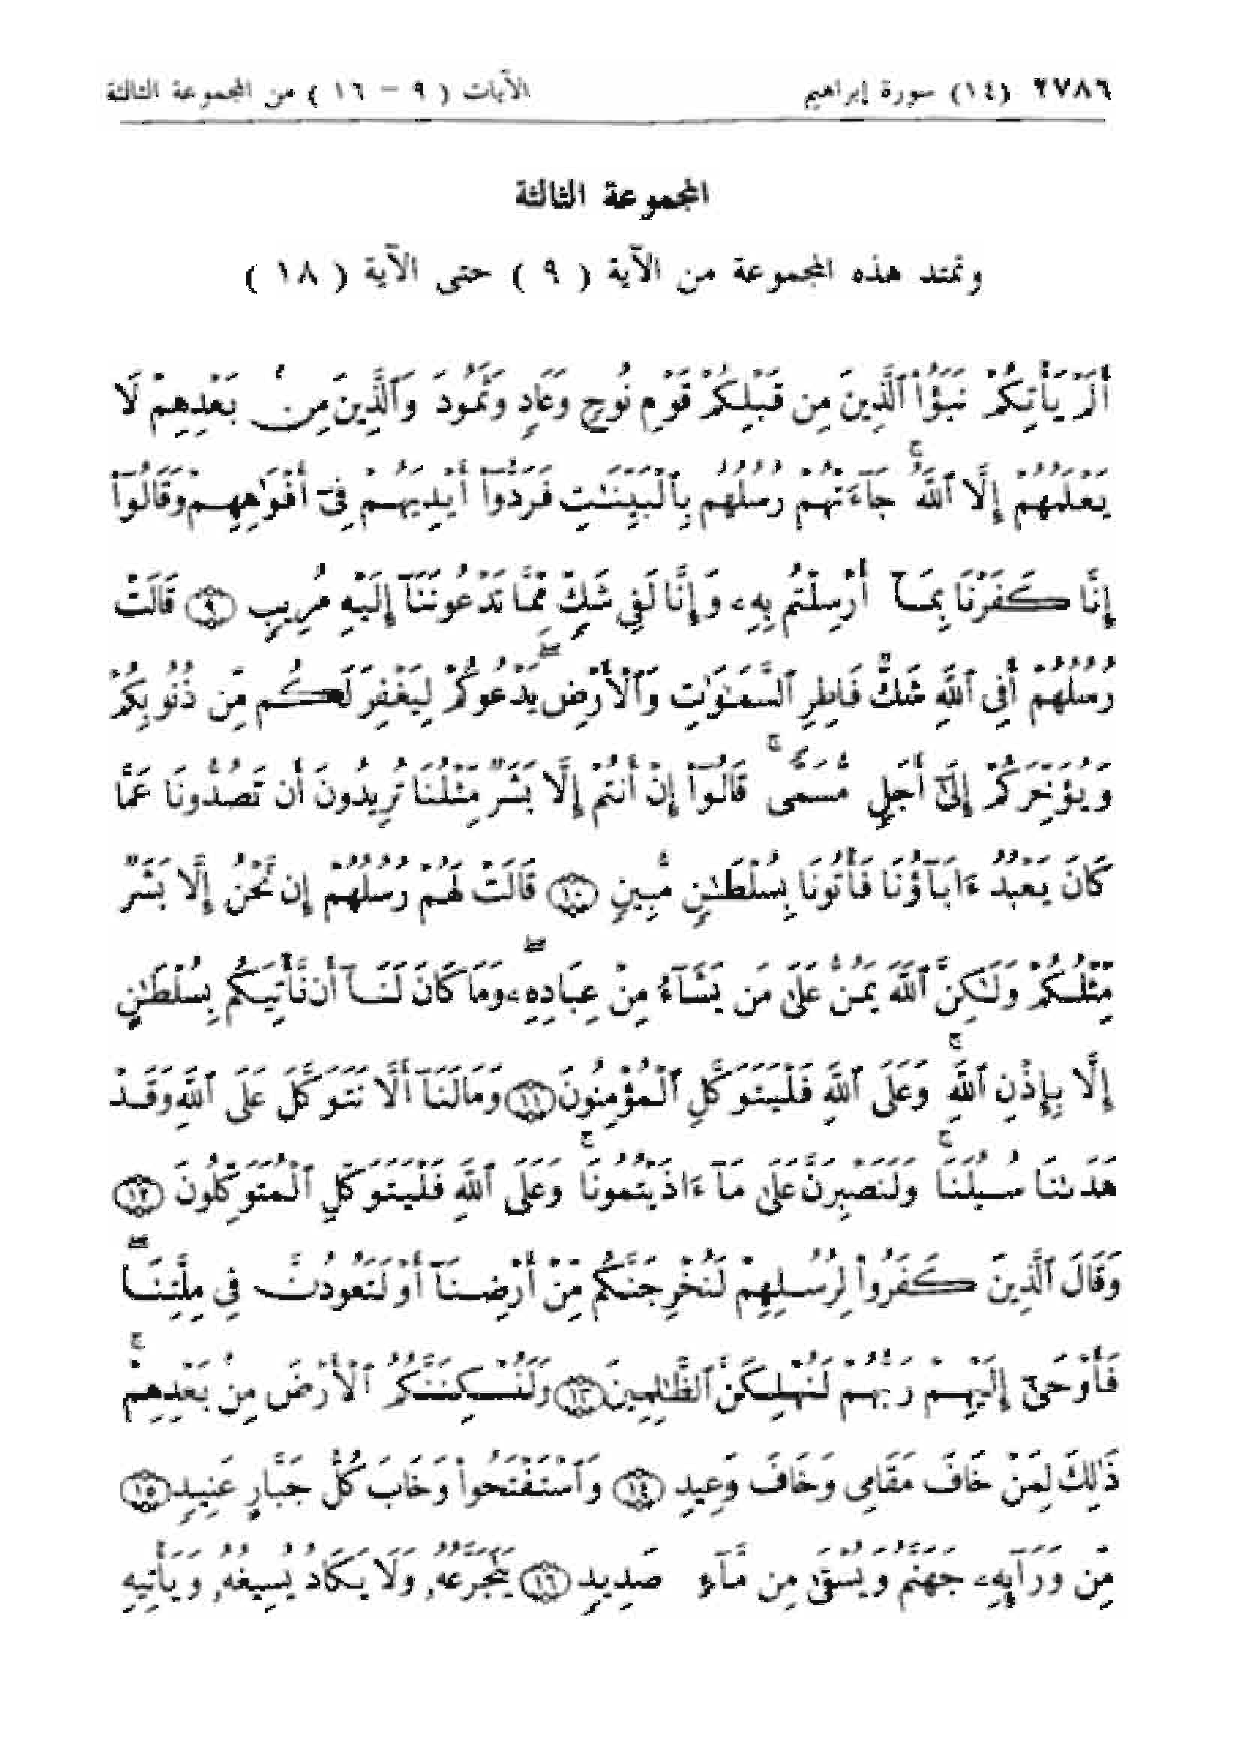 ٢٧٨٦ (١٤) سورة إبراهيم الآيات ( ٩ – ١٦ ) من المجموعة الثالثة
المجموعة الثالثة
وتمتد هذه المجموعة من الآية ( ٩ ) حتى الآية ( ١٨ )
أَلَمْ يَأْتِكُمْ نَبَؤُاْ ٱلَّذِينَ مِن قَبْلِكُمْ قَوْمِ نُوحٍ وَعَادٍ وَثَمُودَ وَٱلَّذِينَ مِنۢ بَعْدِهِمْ لَا
يَعْلَمُهُمْ إِلَّا ٱللَّهُ ۚ جَآءَتْهُمْ رُسُلُهُم بِٱلْبَيِّنَٰتِ فَرَدُّوٓاْ أَيْدِيَهُمْ فِىٓ أَفْوَٰهِهِمْ وَقَالُوٓاْ
إِنَّا كَفَرْنَا بِمَآ أُرْسِلْتُم بِهِۦ وَإِنَّا لَفِى شَكٍّ مِّمَّا تَدْعُونَنَآ إِلَيْهِ مُرِيبٍ ۝٩ قَالَتْ
رُسُلُهُمْ أَفِى ٱللَّهِ شَكٌّ فَاطِرِ ٱلسَّمَٰوَٰتِ وَٱلْأَرْضِ ۖ يَدْعُوكُمْ لِيَغْفِرَ لَكُم مِّن ذُنُوبِكُمْ
وَيُؤَخِّرَكُمْ إِلَىٰٓ أَجَلٍ مُّسَمًّى ۚ قَالُوٓاْ إِنْ أَنتُمْ إِلَّا بَشَرٌ مِّثْلُنَا تُرِيدُونَ أَن تَصُدُّونَا عَمَّا
كَانَ يَعْبُدُ ءَابَآؤُنَا فَأْتُونَا بِسُلْطَٰنٍ مُّبِينٍ ۝١٠ قَالَتْ لَهُمْ رُسُلُهُمْ إِن نَّحْنُ إِلَّا بَشَرٌ
مِّثْلُكُمْ وَلَٰكِنَّ ٱللَّهَ يَمُنُّ عَلَىٰ مَن يَشَآءُ مِنْ عِبَادِهِۦ ۖ وَمَا كَانَ لَنَآ أَن نَّأْتِيَكُم بِسُلْطَٰنٍ
إِلَّا بِإِذْنِ ٱللَّهِ ۚ وَعَلَى ٱللَّهِ فَلْيَتَوَكَّلِ ٱلْمُؤْمِنُونَ ۝١١ وَمَا لَنَآ أَلَّا نَتَوَكَّلَ عَلَى ٱللَّهِ وَقَدْ
هَدَىٰنَا سُبُلَنَا ۚ وَلَنَصْبِرَنَّ عَلَىٰ مَآ ءَاذَيْتُمُونَا ۚ وَعَلَى ٱللَّهِ فَلْيَتَوَكَّلِ ٱلْمُتَوَكِّلُونَ ۝١٢
وَقَالَ ٱلَّذِينَ كَفَرُواْ لِرُسُلِهِمْ لَنُخْرِجَنَّكُم مِّنْ أَرْضِنَآ أَوْ لَتَعُودُنَّ فِى مِلَّتِنَا ۖ
فَأَوْحَىٰٓ إِلَيْهِمْ رَبُّهُمْ لَنُهْلِكَنَّ ٱلظَّٰلِمِينَ ۝١٣ وَلَنُسْكِنَنَّكُمُ ٱلْأَرْضَ مِنۢ بَعْدِهِمْ ۚ
ذَٰلِكَ لِمَنْ خَافَ مَقَامِى وَخَافَ وَعِيدِ ۝١٤ وَٱسْتَفْتَحُواْ وَخَابَ كُلُّ جَبَّارٍ عَنِيدٍ ۝١٥
مِّن وَرَآئِهِۦ جَهَنَّمُ وَيُسْقَىٰ مِن مَّآءٍ صَدِيدٍ ۝١٦ يَتَجَرَّعُهُۥ وَلَا يَكَادُ يُسِيغُهُۥ وَيَأْتِيهِ